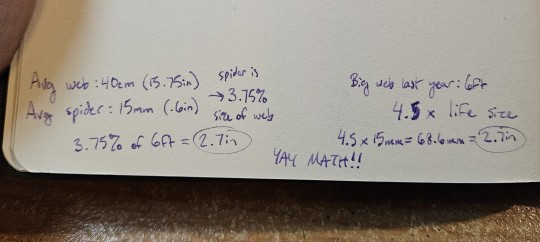 Avg web: 40cm (15.75in)
Avg spider: 15mm (.6in)
spider is
→ 3.75%
size of web
3.75% of 6ft = 2.7in
Big web last year: 6ft
4.5 x life size
4.5 x 15mm = 68.6mm = 2.7in
YAY MATH!!